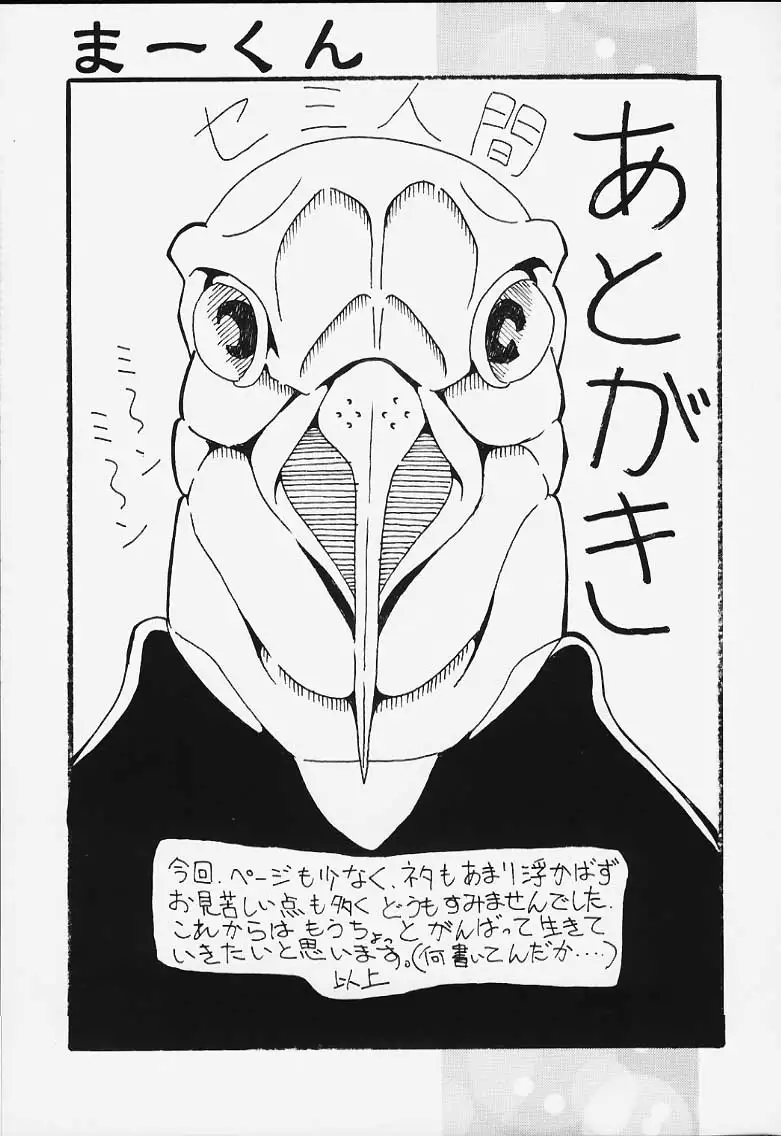 まーくん
セミ人間
あとがき
ミ〜ン
ミ〜ン
今回、ページも少なく、ネタもあまり浮かばず
お見苦しい点も多くどうもすみませんでした.
これからはもうちょっとがんばって生きて
いきたいと思います。(何書いてんだか....)
以上